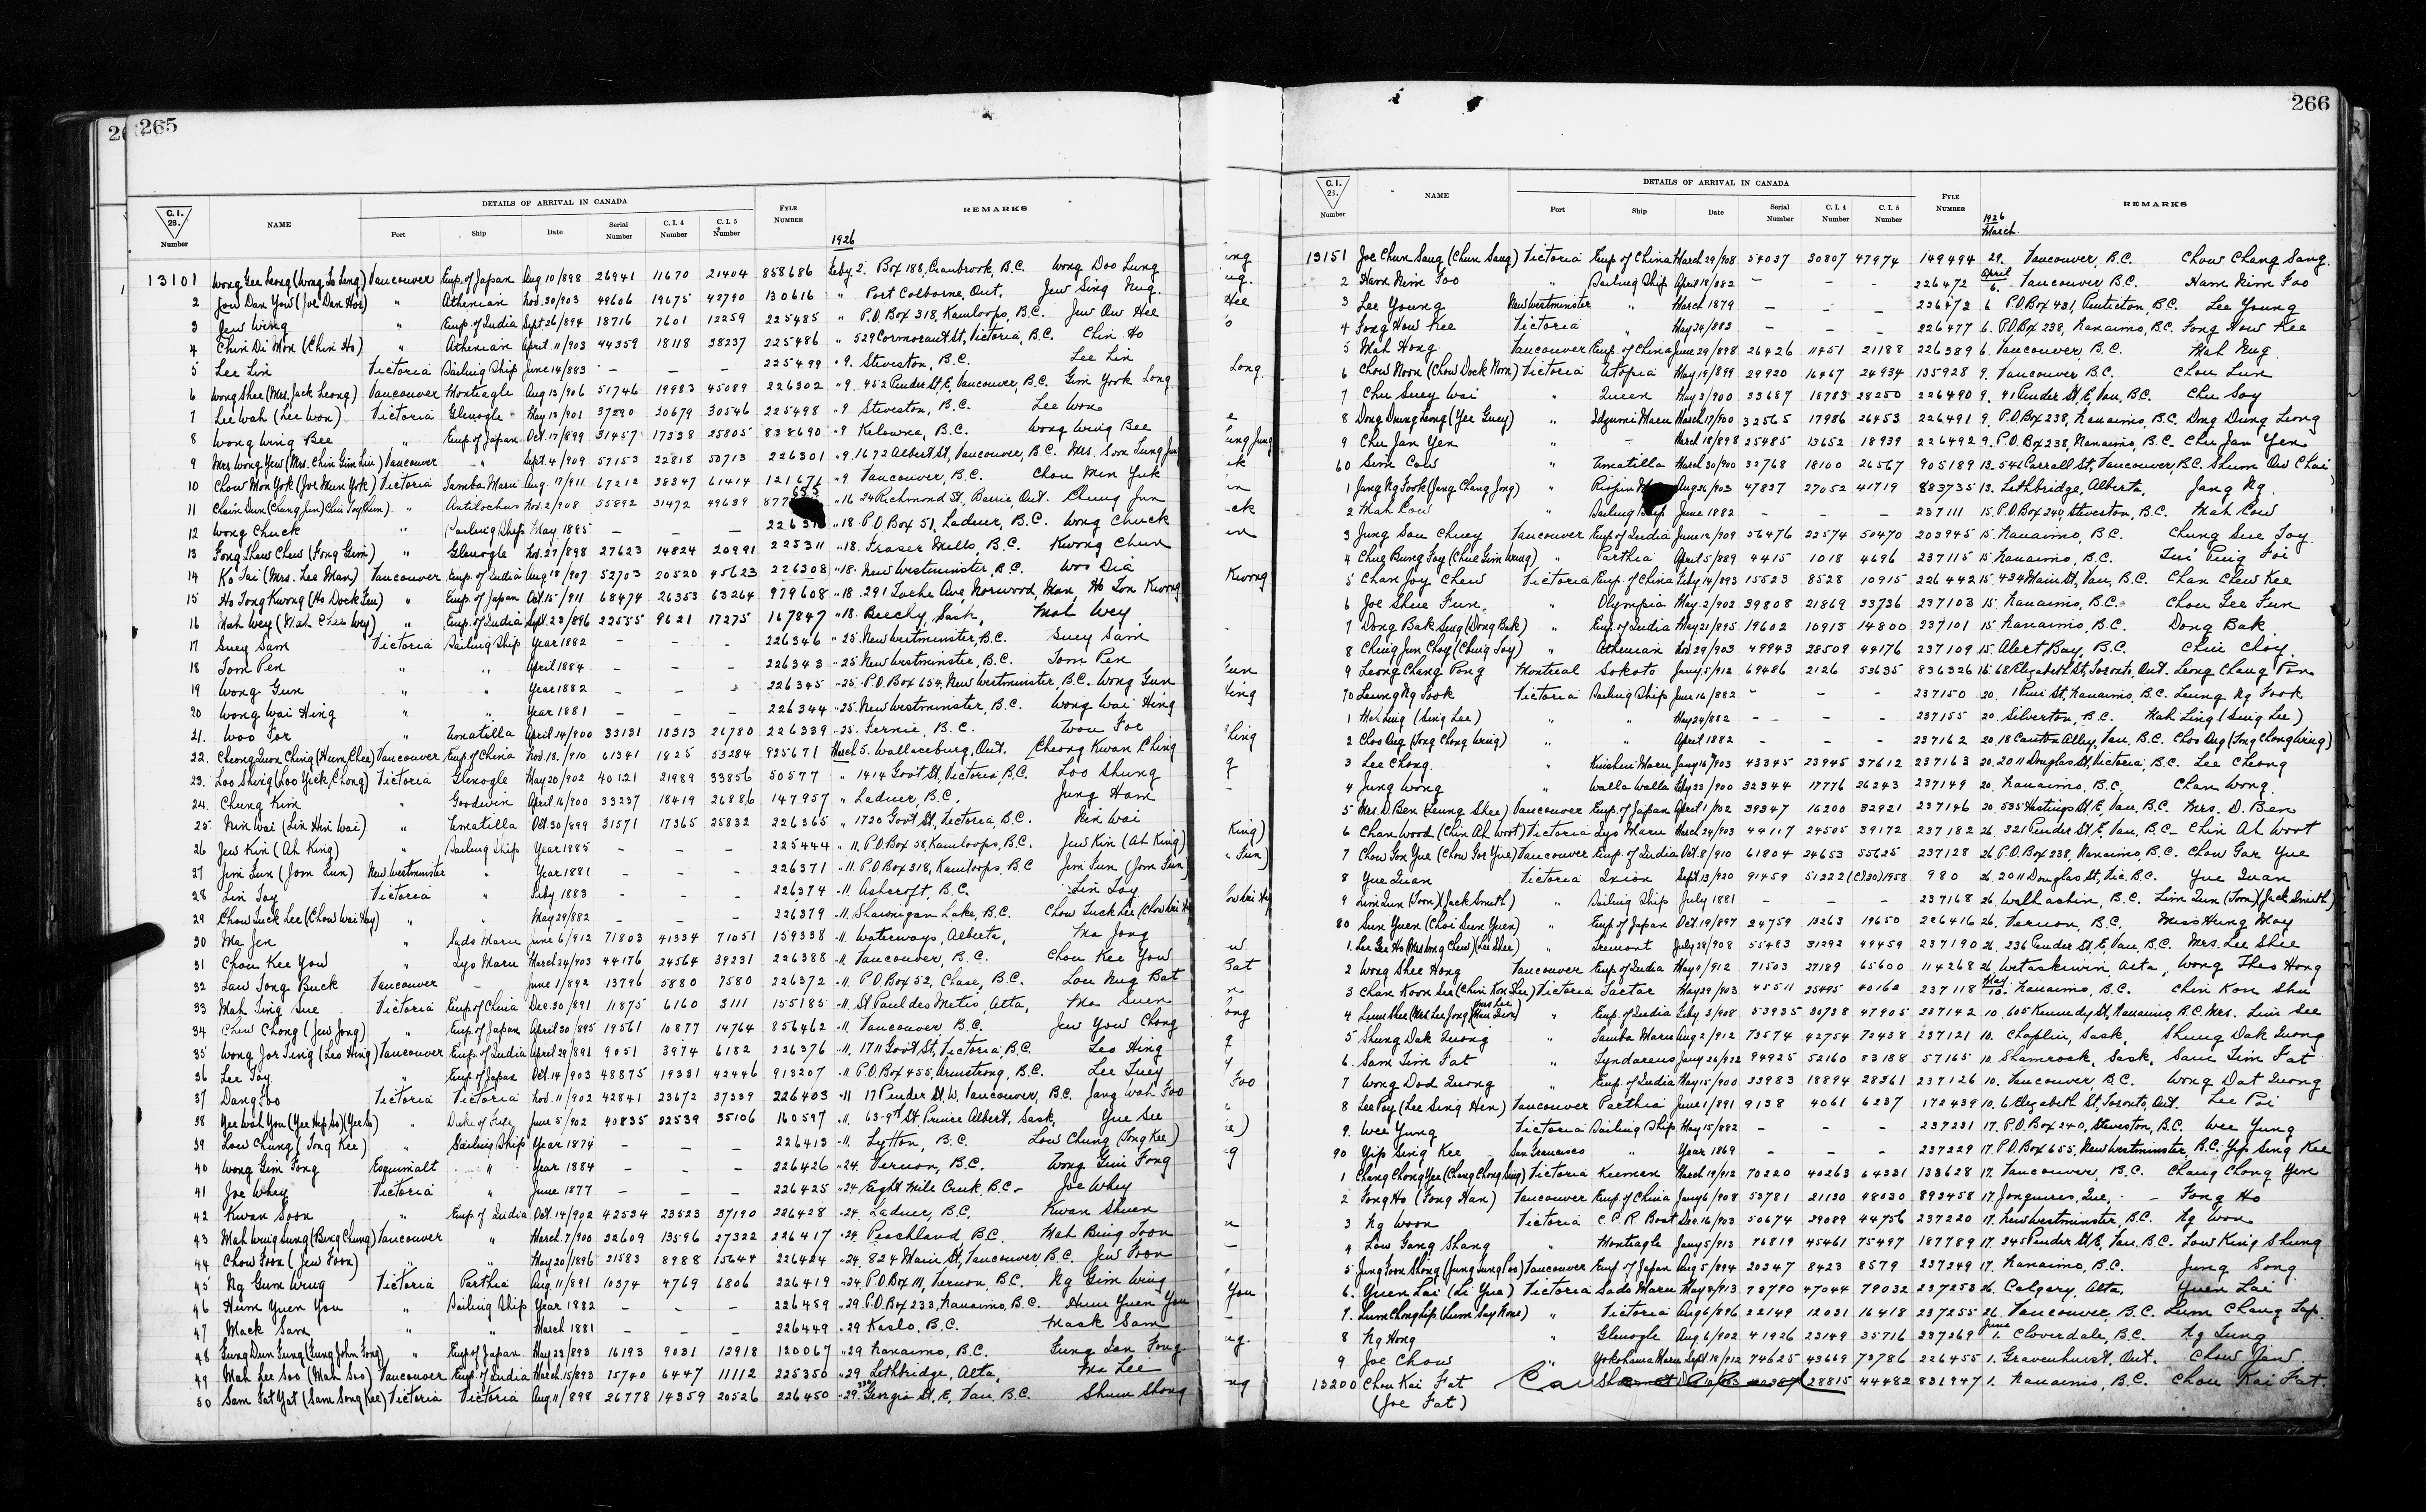 265
C.I. 28. Number NAME DETAILS OF ARRIVAL IN CANADA FYLE NUMBER REMARKS
Port Ship Date Serial Number C.I.4 Number C.I.5 Number
1926
13101 Wong Gee Leong Vancouver Emp. of Japan Aug 10/898 26941 11670 21404 858686 Feby 2. Box 188, Cranbrook, B.C. Wong Doo Lung
2 Jow Dan Yow (Joe Dan Hoe) " Athenian Nov. 30/903 49606 19675 42790 130616 " Port Colborne, Ont. Jew Sing Nug
3 Jew Wing " Emp. of India Sept 26/894 18716 7601 12259 225485 " P.O. Box 318, Kamloops, B.C. Jew Ow Hee
4 Chin Di Mon (Chin Ho) " Athenian April 11/903 44359 18118 38237 225486 " 529 Cormorant St, Victoria, B.C. Chin Ho
5 Lee Lin Victoria Sailing Ship June 14/883 — — — 225499 " 9. Steveston, B.C. Lee Lin
6 Wong Shee (Mrs. Jack Leong) Vancouver Monteagle Aug 13/906 51746 19983 45089 226302 " 9. 452 Pender St, E, Vancouver, B.C. Gim York Long
7 Lee Wah (Lee Won) Victoria Glenogle May 13/901 37290 20679 30546 225498 " 9 Steveston, B.C. Lee Won
8 Wong Wing Bee " Emp. of Japan Oct. 17/899 31457 17338 25805 838690 " 9 Kelowna, B.C. Wong Wing Bee
9 Mrs Wong Yew (Mrs. Chin Gim Lin) Vancouver " Sept. 4/909 57153 22818 50713 226301 " 9. 1672 Albert St, Vancouver, B.C. Mrs. Soon Lung Jung
10 Chow Mon York (Joe Mun York) Victoria Tamba Maru Aug. 17/911 67212 38347 61414 121671 " 9 Vancouver, B.C. Chou Men Yuk
11 Chain Dun (Chung Jun) " Antilochus Nov. 2/908 55892 31472 49639 877 655 " 16 24 Richmond St, Barrie, Ont. Chung Jun
12 Wong Chuck " Sailing Ship May 1885 — — — " 18. P.O Box 51, Ladner, B.C. Wong Chuck
13 Fong Shew Chew (Fong Gim) " Glenogle Nov. 27/898 27623 14824 20991 225311 " 18. Fraser Mills, B.C. Kwong Chun
14 Ko Tai (Mrs. Lee Man) Vancouver Emp. of India Aug 18/907 52703 20520 45623 226308 " 18. New Westminster, B.C. Woo Dia
15 Ho Tong Kwong (Ho Dock Fun) " Emp. of Japan Oct. 15/911 68474 26353 63264 979608 " 18. 291 Tache Ave, Norwood, Man, Ho Ton Kwong
16 Mah Wey (Mah Chew Wey) " Emp. of India Sept. 23/896 22555 9621 17275 167847 " 18. Beechy, Sask, Mah Wey
17 Suey Sam Victoria Sailing Ship Year 1882 — — — 226346 " 25. New Westminster, B.C. Suey Sam
18 Tom Pen " " April 1884 — — — 226343 " 25 New Westminster, B.C. Tom Pen
19 Wong Gun " " Year 1882 — — — 226345 " 25. P.O. Box 654, New Westminster, B.C. Wong Gun
20 Wong Wai Hing " " Year 1881 — — — 226344 " 25. New Westminster, B.C. Wong Wai Hing
21. Woo For " Umatilla April 14/900 33131 18313 26780 226339 " 25. Fernie, B.C. Wou Foe
22. Cheong Quon Ching (Hum Chee) Vancouver Emp of China Nov. 18./910 61341 1825 53284 925671 March 5. Wallaceburg, Ont. Cheong Kwan Ching
23. Loo Sing (Loo Yick Chong) Victoria Glenogle May 20/902 40121 21989 33856 50577 " 1414 Govt St, Victoria, B.C. Loo Shung
24. Chung Kim " Goodwin April 16/900 33237 18419 26886 147957 " Ladner, B.C. Jung Ham
25. Nin Wai (Lin Hin Wai) " Umatilla Oct. 30/899 31571 17365 25832 226365 " 1720 Govt St, Victoria, B.C. Nin Wai
26 Jew Kin (Ah King) " Sailing Ship Year 1885 — — — 225444 " 11. P.O. Box 58, Kamloops, B.C. Jew Kin (Ah King)
27 Jim Fun (Jom Fun) New Westminster " Year 1881 — — — 226371 " 11. P.O. Box 318, Kamloops, B.C Jim Fun (Jom Fun)
28 Lin Toy Victoria " July 1883 — — — 226374 " 11. Ashcroft, B.C. Lin Toy
29 Chow Tuck Lee (Chow Wai Hay) " " May 29/882 — — — 226379 " 11. Shawnigan Lake, B.C. Chow Tuck Lee (Chow Wai Hay
30 Ma Jen " Sado Maru June 6/912 71803 41334 71051 159338 " 11. Waterways, Alberta, Ma Jong
31 Chou Kee Yow " Lyo Maru March 24/903 44176 24564 39231 226388 " 11. Vancouver, B.C. Chou Kee Yow
32 Law Tong Buck Vancouver — June 1/892 13796 5880 7580 226372 " 11. P.O. Box 52, Chase, B.C. Lou Nug Bat
33 Mah Ting Sue Victoria Emp of China Dec. 30/891 11875 6160 3111 155185 " 11. St Paul des Metis, Alta, Ma Suen
34 Chew Chong (Jew Jong) " Emp. of Japan April 30/895 19561 10877 14764 856462 " 11. Vancouver, B.C. Jew Yow Chong
35 Wong Jor Ting (Leo Hing) Vancouver Emp. of India April 29/891 9051 3974 6182 226376 " 11. 1711 Govt St, Victoria, B.C. Leo Hing
36 Lee Toy " Emp. of Japan Oct. 14/903 48875 19331 42446 913207 " 11 P.O. Box 455, Armstrong, B.C. Lee Tuey
37 Dang Foo Victoria Victoria Nov. 11/902 42841 23672 37339 226403 " 11 17 Pender St, W. Vancouver, B.C. Jang Wah Foo
38 Yee Wah You (Yee Hip So) (Yee So) " Duke of Fife June 5/902 40835 22539 35106 160597 " 11. 63-9th St, Prince Albert, Sask, Yue See
39 Low Chung (Tong Kee) " Sailing Ship Year 1874 — — — 226413 " 11. Lytton, B.C. Low Chung (Tong Kee)
40 Wong Gim Fong Esquimalt " Year 1884 — — — 226426 " 24. Vernon, B.C. Wong Gim Fong
41 Joe Whey Victoria " June 1877 — — — 226425 " 24 Eight Mile Creek, B.C. Joe Whey
42 Kwan Soon " Emp. of India Oct. 14/902 42534 23523 37190 226428 " 24. Ladner, B.C. Kwan Shuen
43 Mah Wing Sung (Bing Chung) Vancouver " March. 7/900 32609 13596 27322 226417 " 24. Peachland, B.C. Mah Bing Toon
44 Chow Foon (Jew Foon) " " May 20/1896 21583 8988 15644 226424 " 24. 824 Main St, Vancouver B.C. Jew Foon
45 Ng Gum Wing Victoria Parthia Aug. 11/891 10374 4769 6806 226419 " 24. P.O. Box 111, Vernon, B.C. Ng Gim Wing
46 Hum Yuen You " Sailing Ship Year 1882 — — — 226459 " 29. P.O. Box 233, Nanaimo, B.C. Hum Yuen You
47 Mack Sam " " March 1881 — — — 226449 " 29 Kaslo, B.C. Mack Sam
48 Fung Dun Fung (Fung John Fong) " Emp. of Japan May 23/893 16193 9031 12918 120067 " 29 Nanaimo, B.C. Fung Jan Fong
49 Mah Lee Soo (Mah Soo) Vancouver Emp. of India March 15/893 15740 6447 11112 225350 " 29 Lethbridge, Alta, Ma Lee
50 Sam Fat Yat (Sam Song Kee) Victoria Victoria Aug. 11/898 26778 14359 20526 226450 " 29. 330 Georgia St, E, Van, B.C. Shum Shong
266
C.I. 28. Number NAME DETAILS OF ARRIVAL IN CANADA FYLE NUMBER REMARKS
Port Ship Date Serial Number C.I.4 Number C.I.5 Number
1926 March.
13151 Joe Chun Sang (Chun Sang) Victoria Emp of China March 29/908 54037 30807 47974 149494 29. Vancouver, B.C. Chow Chang Sang.
2 Ham Nim Foo " Sailing Ship April 18/882 — — — 226472 April 6. Vancouver B.C. Ham Nim Foo
3 Lee Young New Westminster " March 1879 — — — 226473 6 P.O Box 431, Penticton, B.C. Lee Young
4 Fong How Kee Victoria " May 24/882 — — — 226477 6. P.O. Box 238, Nanaimo, B.C. Fong How Kee
5 Mah Hong Vancouver Emp. of China June 29/898 26426 11451 21188 226389 6. Vancouver, B.C. Mah Nug
6 Chow Noon (Chow Dock Norn) Victoria Utopia May 19/899 29920 16467 24934 135928 9. Vancouver B.C. Chou Lun
7 Chu Suey Wai " Queen May 2/900 33687 18783 28250 226490 9. 91 Pender St, E, Van, B.C. Chu Soy
8 Dong Dung Leong (Yee Guey) " Idzumi Maru March 17/900 32565 17986 26453 226491 9. P.O. Box 238, Nanaimo, B.C. Dong Dung Leong
9 Chu Jan Yen " — March 18/898 25485 13652 18939 226492 9. P.O. Box 238, Nanaimo, B.C. Chu Jan Yen
60 Sim Cow " Umatilla March 30/900 32768 18100 26567 905189 13. 541 Carrall St, Vancouver, B.C. Shum Ow Chai
1 Jang Ng Fook (Jang Chang Jng) " Riojun Aug 26/903 47827 27052 41719 883735 13. Lethbridge, Alberta, Jang Ng.
2 Mah Cow " Sailing Ship June 1882 — — — 237111 15. P.O. Box 240, Steveston, B.C. Mah Cow
3 Jung Sou Chuey Vancouver Emp. of India June 12/909 56476 22574 50470 203945 15. Nanaimo, B.C. Chung Sue Toy
4 Chue Bung Foy (Chue Gim Wing) " Parthia April 5/889 4415 1018 4696 237115 15. Nanaimo, B.C. Tui Ping Foi
5 Chan Joy Chew Victoria Emp. of China Feby 14/893 15523 8528 10915 226442 15. 434 Main St, Van, B.C. Chan Chew Kee
6 Joe Shue Fun " Olympia May. 2/902 39808 21869 33736 237103 15. Nanaimo, B.C. Chou Gee Fun
7 Dong Bak Sing (Dong Bak) " Emp. of India May 21/895 19602 10913 14800 237101 15 Nanaimo, B.C. Dong Bak
8 Ching Jun Choy (Ching Toy) " Athenian Nov. 29/903 49943 28509 44176 237109 15. Alert Bay, B.C. Chin Choy
9 Leong Chang Pong Montreal Sokoto Jany 5/912 69486 2126 53635 836326 16. 68 Elizabeth St, Toronto, Ont. Leong Chang Pon
70 Leung Ng Fook Victoria Sailing Ship June 16/882 — — — 237150 20. 1 Pine St, Nanaimo, B.C. Leung Ng Fook
1 Mah Ling (Sing Lee) " " May 24/882 — — — 237155 20. Silverton, B.C. Mah Ling (Sing Lee)
2 Choo Ong (Tong Chong Wing) " " April 1882 — — — 237162 20. 18 Canton Alley, Van, B.C. Choo Ong (Tong Chong Wing)
3 Lee Chong " Kinshiu Maru Jany 16/903 43345 23945 37612 237163 20. 2011 Douglas St, Victoria, B.C. Lee Cheong
4 Jung Wong " Walla Walla Feby 23/900 32344 17776 26243 237149 20. Nanaimo, B.C. Chan Wong
5 Mrs. D. Ben (Leung Shee) Vancouver Emp. of Japan April 1/02 39347 16200 32921 237146 20. 535 Hastings St, E, Van, B.C. Mrs. D. Ben
6 Chan Wood (Chin Ah Woot) Victoria Lyo Maru March 24/903 44117 24505 39172 237182 26. 321 Pender St, E, Van, B.C. Chin Ah Woot
7 Chow Gon Yue (Chow Gor Yue) Vancouver Emp. of India Oct. 8/910 61804 24653 55625 237128 26 P.O. Box 238, Nanaimo, B.C. Chow Gar Yue
8 Yue Quan Victoria Ixion Sept. 13/920 91459 51222 (C.I.30) 1958 980 26. 2011 Douglas St, Vic. B.C. Yue Quan
9 Lim Lun (Tom) (Jack Smith) " Sailing Ship July 1881 — — — 237168 26. Walhachin, B.C. Lim Lun (Tom) (Jack Smith)
80 Sun Yuen (Choi Sun Yuen) " Emp of Japan Oct. 19/897 24759 13263 19650 226416 26. Vernon, B.C. Miss Hung May
1. Lee Gee Ho (Mrs Wong Chew) (Lee Shee) " Tremont July 28/908 55483 31292 49459 237190 26. 236 Pender St, E, Van, B.C. Mrs. Lee Shee
2 Wong Shee Hong Vancouver Emp of India May 1/912 71503 27189 65600 114268 26. Wetaskiwin, Alta, Wong Theo Hong
3 Chan Koon See (Chin Kon Shu) Victoria Tartar May 29/903 45511 25495 40162 237118 May 10. Nanaimo, B.C. Chin Kon Shu
4 Lum Shee (Mrs Lee Jong) " Emp. of India Feby 3/908 53935 30738 47905 237142 10. 605 Kennedy St, Nanaimo, B.C. Mrs. Lim See
5 Shung Dak Quong " Tamba Maru Aug 2/912 73574 42754 72438 237121 10. Chaplin, Sask, Shung Dak Quong
6. Sam Tim Fat " Tyndareus Jany 26/922 94925 52160 83188 57165 10. Shamrock, Sask, Sam Tim Fat
7 Wong Dod Quong " Emp. of India May 15/900 33983 18894 28361 237126 10. Vancouver, B.C. Wong Dat Quong
8 Lee Poy (Lee Sing Hen) Vancouver Parthia June 1/891 9138 4061 6237 172439 10. 6 Elizabeth St, Toronto, Ont. Lee Poi
9. Wee Yung Victoria Sailing Ship May 15/882 — — — 237231 17. P.O. Box 240, Steveston, B.C. Wee Yung
90 Yip Sing Kee San Francisco " Year 1869 — — — 237229 17. P.O. Box 655, New Westminster, B.C. Yip Sing Kee
1 Chang Chong Yee (Chang Chong Sing) Victoria Keemun March 19/912 70220 40263 64321 133628 17. Vancouver, B.C. Chang Chong Yen
2 Fong Ho (Fong Han) Vancouver Emp. of China Jany 6/908 53781 21130 48030 893458 17. Jonquires, Que, — Fong Ho
3 Ng Woon Victoria C.P.R. Boat Dec. 16/903 50674 29089 44756 237220 17. New Westminster, B.C. Ng Won
4 Low Gang Shang " Monteagle Jany 5/913 76819 45461 75497 187789 17. 245 Pender St, E, Van. B.C. Low King Shung
5 Jung Foon Shong Vancouver Emp. of Japan Aug 5/894 20347 8423 8579 237249 17. Nanaimo, B.C. Jung Song
6. Yuen Lai (Li Yue) Victoria Sado Maru May 8/913 78790 47044 79032 237253 26. Calgary, Alta, Yuen Lai
7. Lum Chong Lip " Victoria Aug 6/896 22149 12031 16418 237255 26. Vancouver, B.C. Lum Chang Lap
8 Ng Hong " Glenogle Aug 6/902 41926 23149 35716 237269 June 1. Cloverdale, B.C. Ng Fung
9 Joe Chow " Yokohama Maru Sept. 18/912 74625 43669 73786 226455 1. Gravenhurst, Ont. Chow Jaw
13200 Chou Kai Fat 28815 44482 831947 1. Nanaimo, B.C. Chou Kai Fat
(Joe Fat)